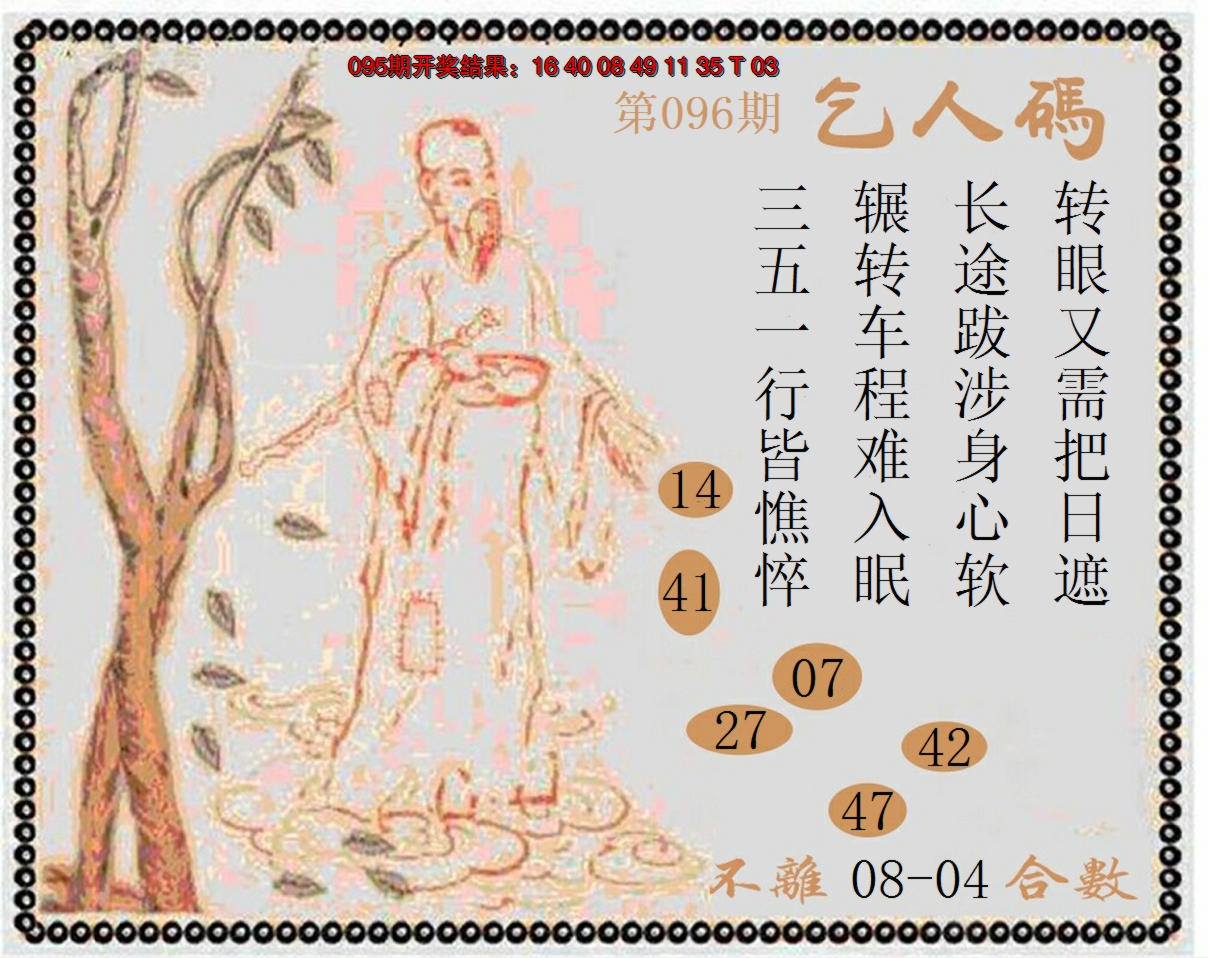 095期开奖结果：16 40 08 49 11 35 T 03
第096期 乞人碼
转眼又需把日遮
长途跋涉身心软
辗转车程难入眠
三五一行皆憔悴
14
41
07
27
42
47
不離 08-04 合數